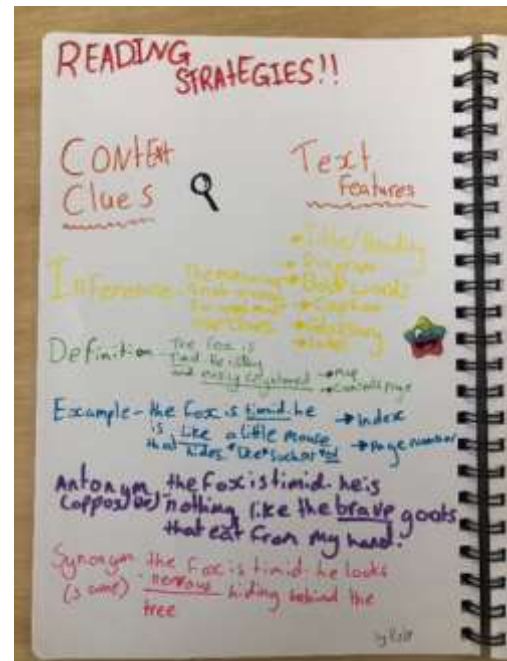 READING
STRATEGIES!!
CONTEXT
Clues
Text
Features
Inference -
→ Title/Heading
→ Diagram
→ Bold words
→ Caption
→ Glossary
Definition - The fox is
timid he is shy
and easily frightened
→ Map
→ Contents page
Example - the fox is timid. he
is like a little mouse
that hides
→ Index
→ Page number
Antonym the fox is timid. he is
(opposite) nothing like the brave goats
that eat from my hand.
Synonym the fox is timid. he looks
(same) nervous hiding behind the
tree